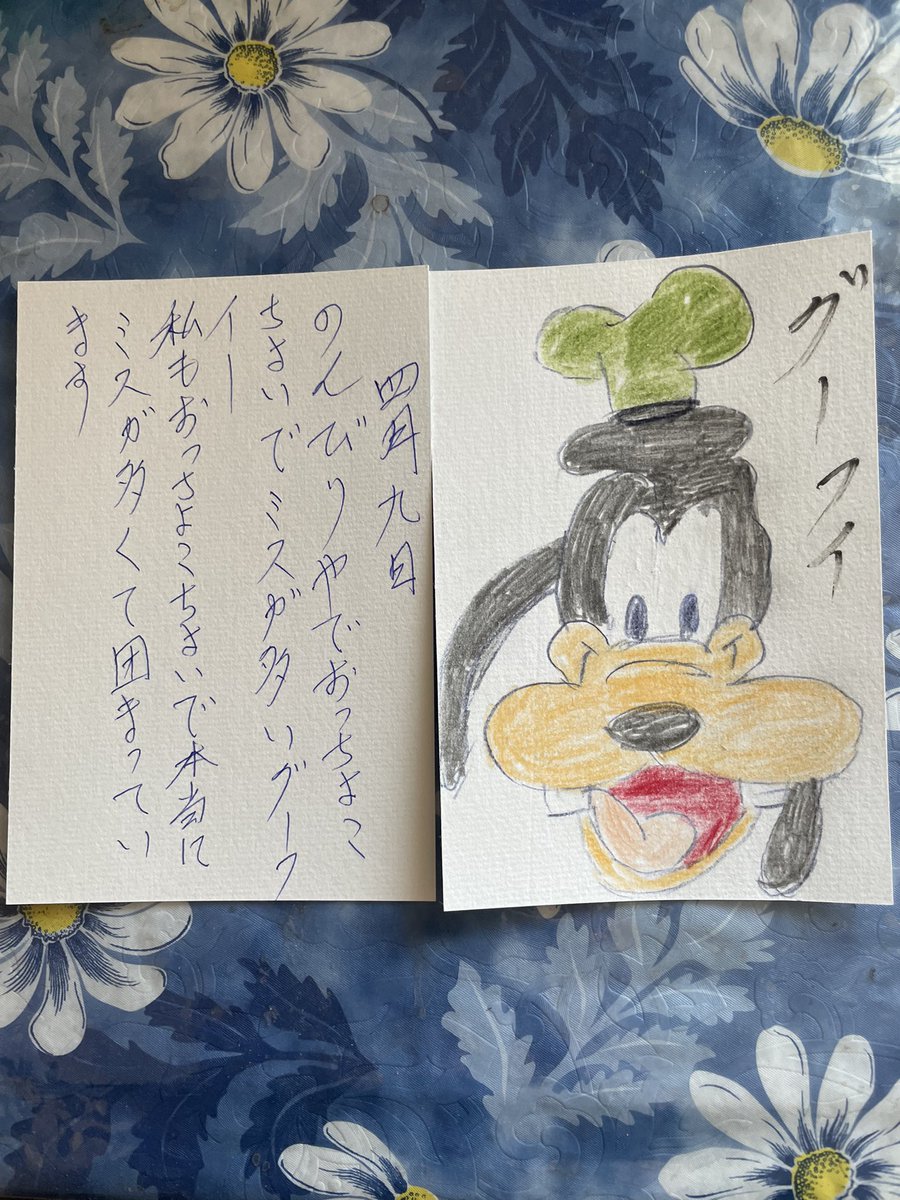 グーフィ
四月九日
のんびりやでおっちょこ
ちょいでミスが多いグーフ
ィー
私もおっちょこちょいで本当に
ミスが多くて困ってい
ます